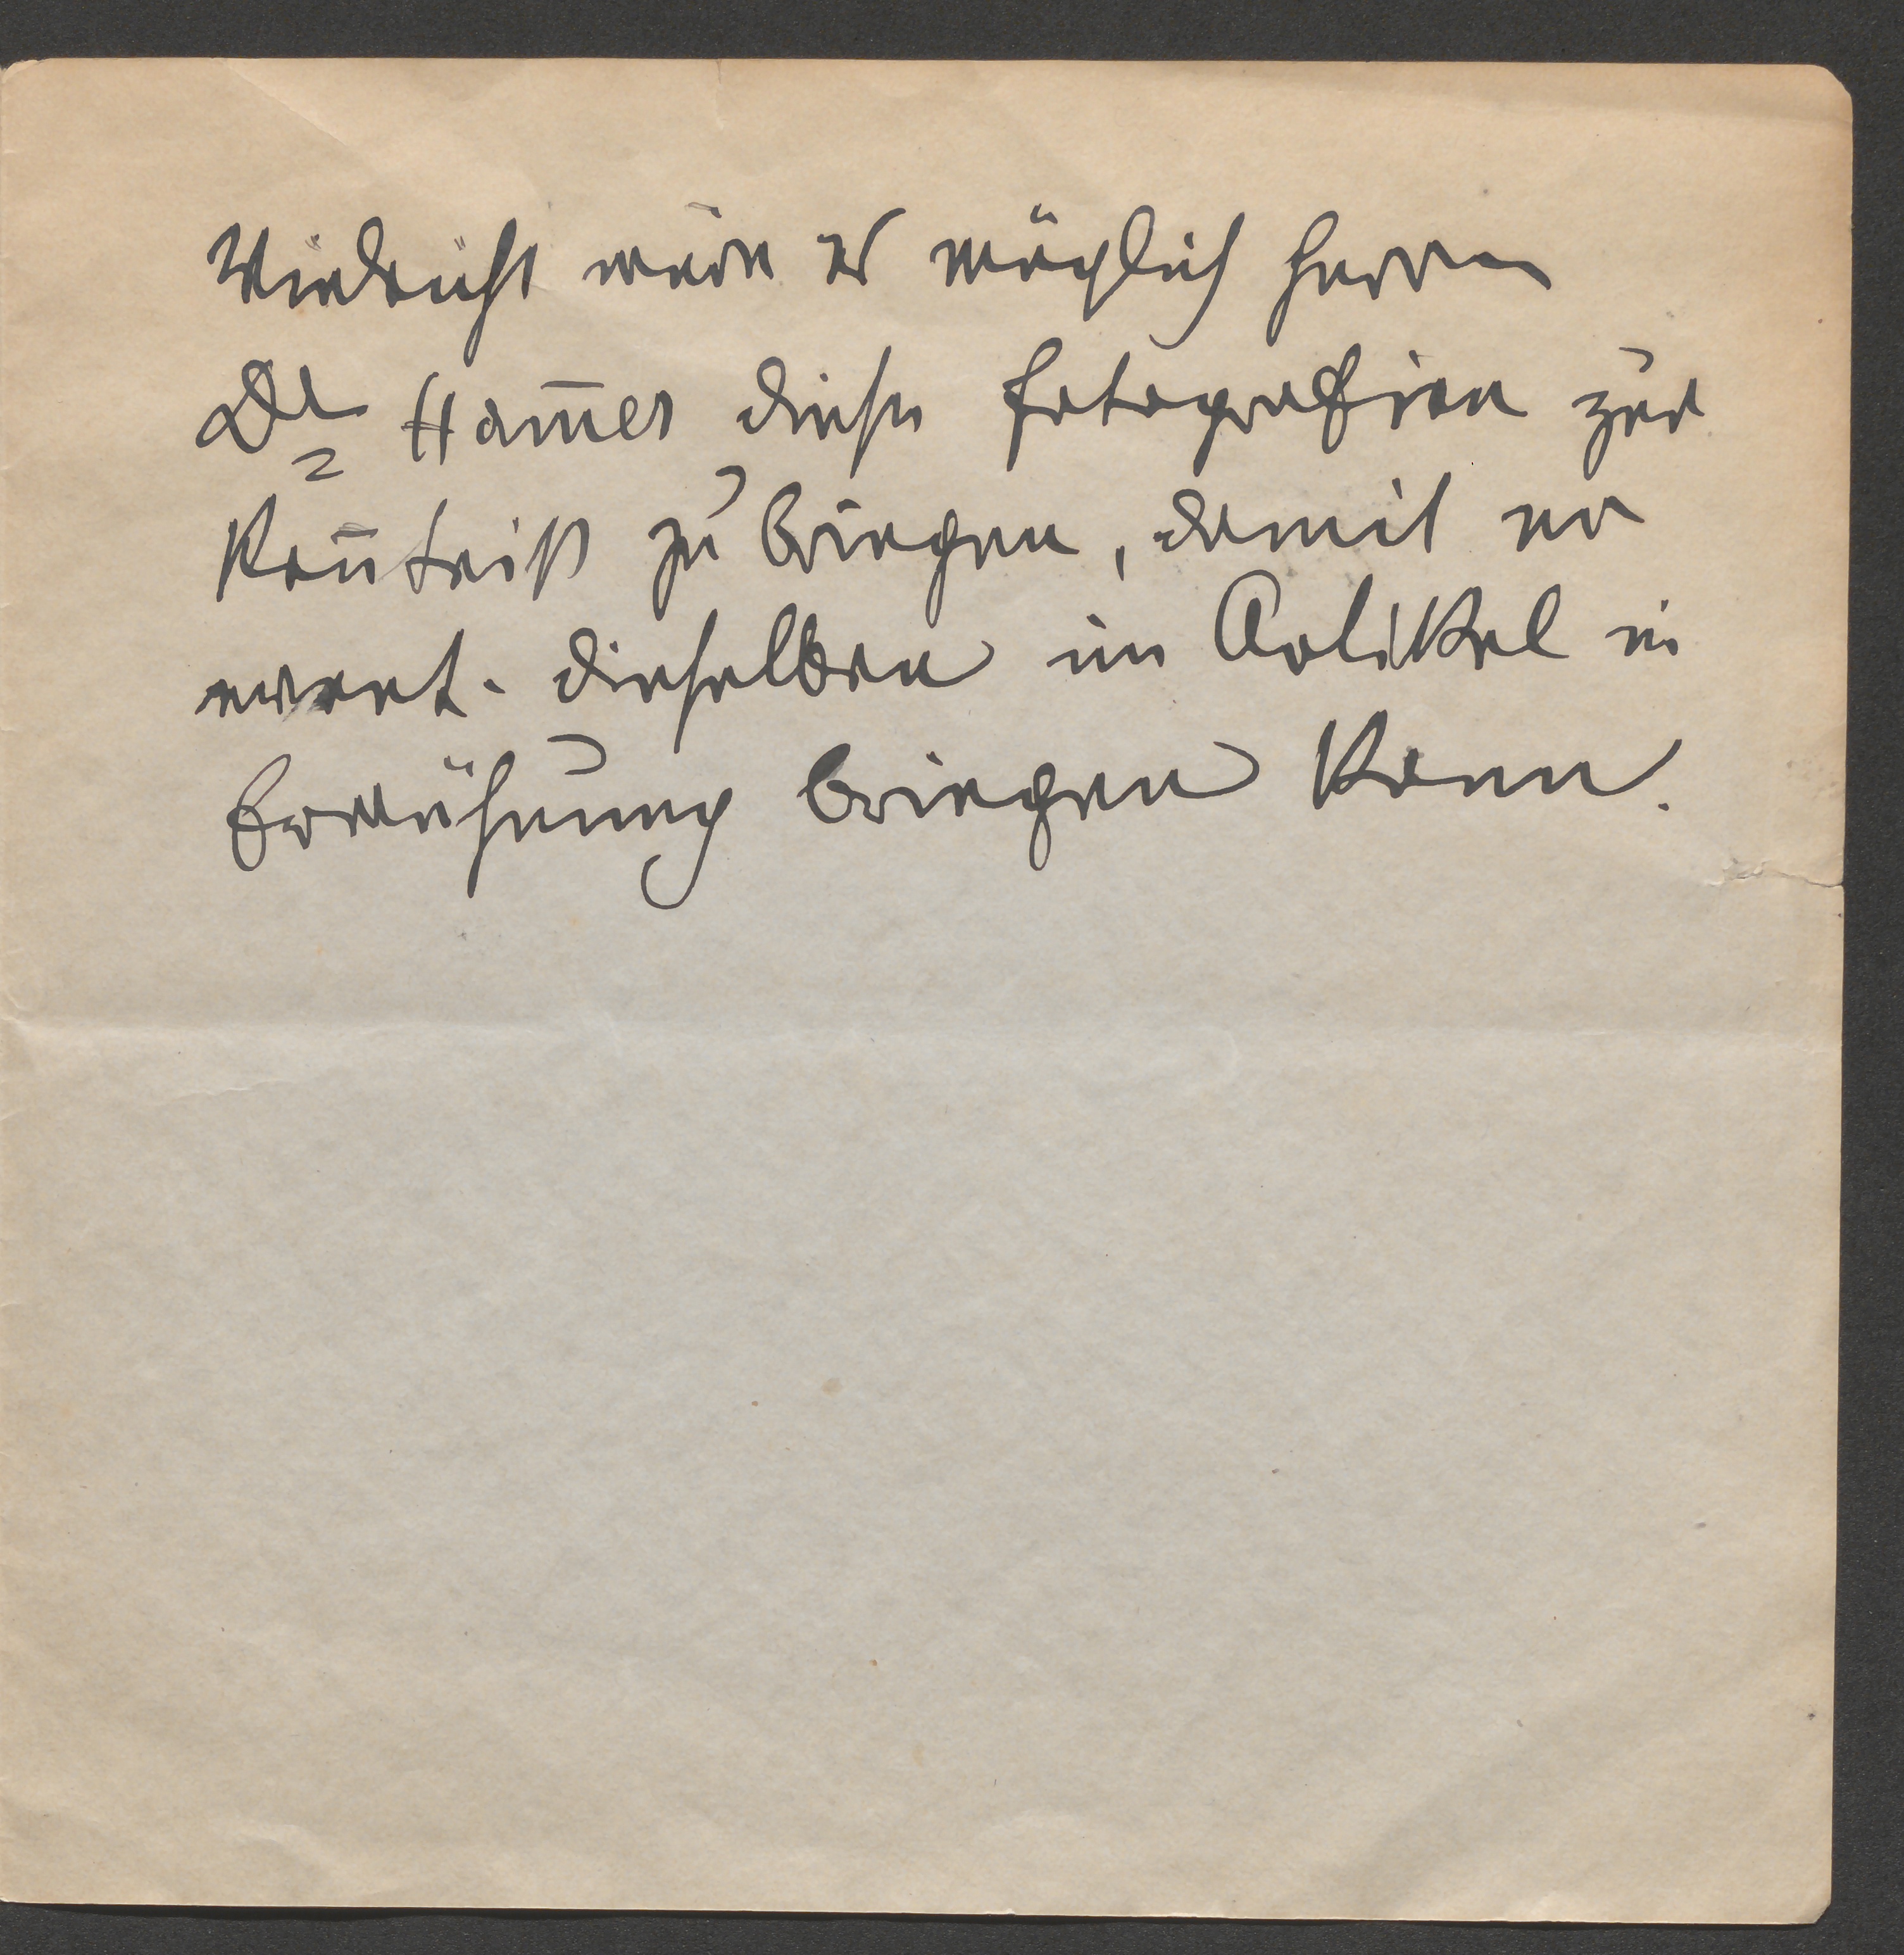 Vielleicht wäre es möglich Herrn
Dr Ham̅er diese Fotografien zur
Ken̅tniß zu bringen, damit er
event. dieselben im Artikel in
Erwähnung bringen kann.